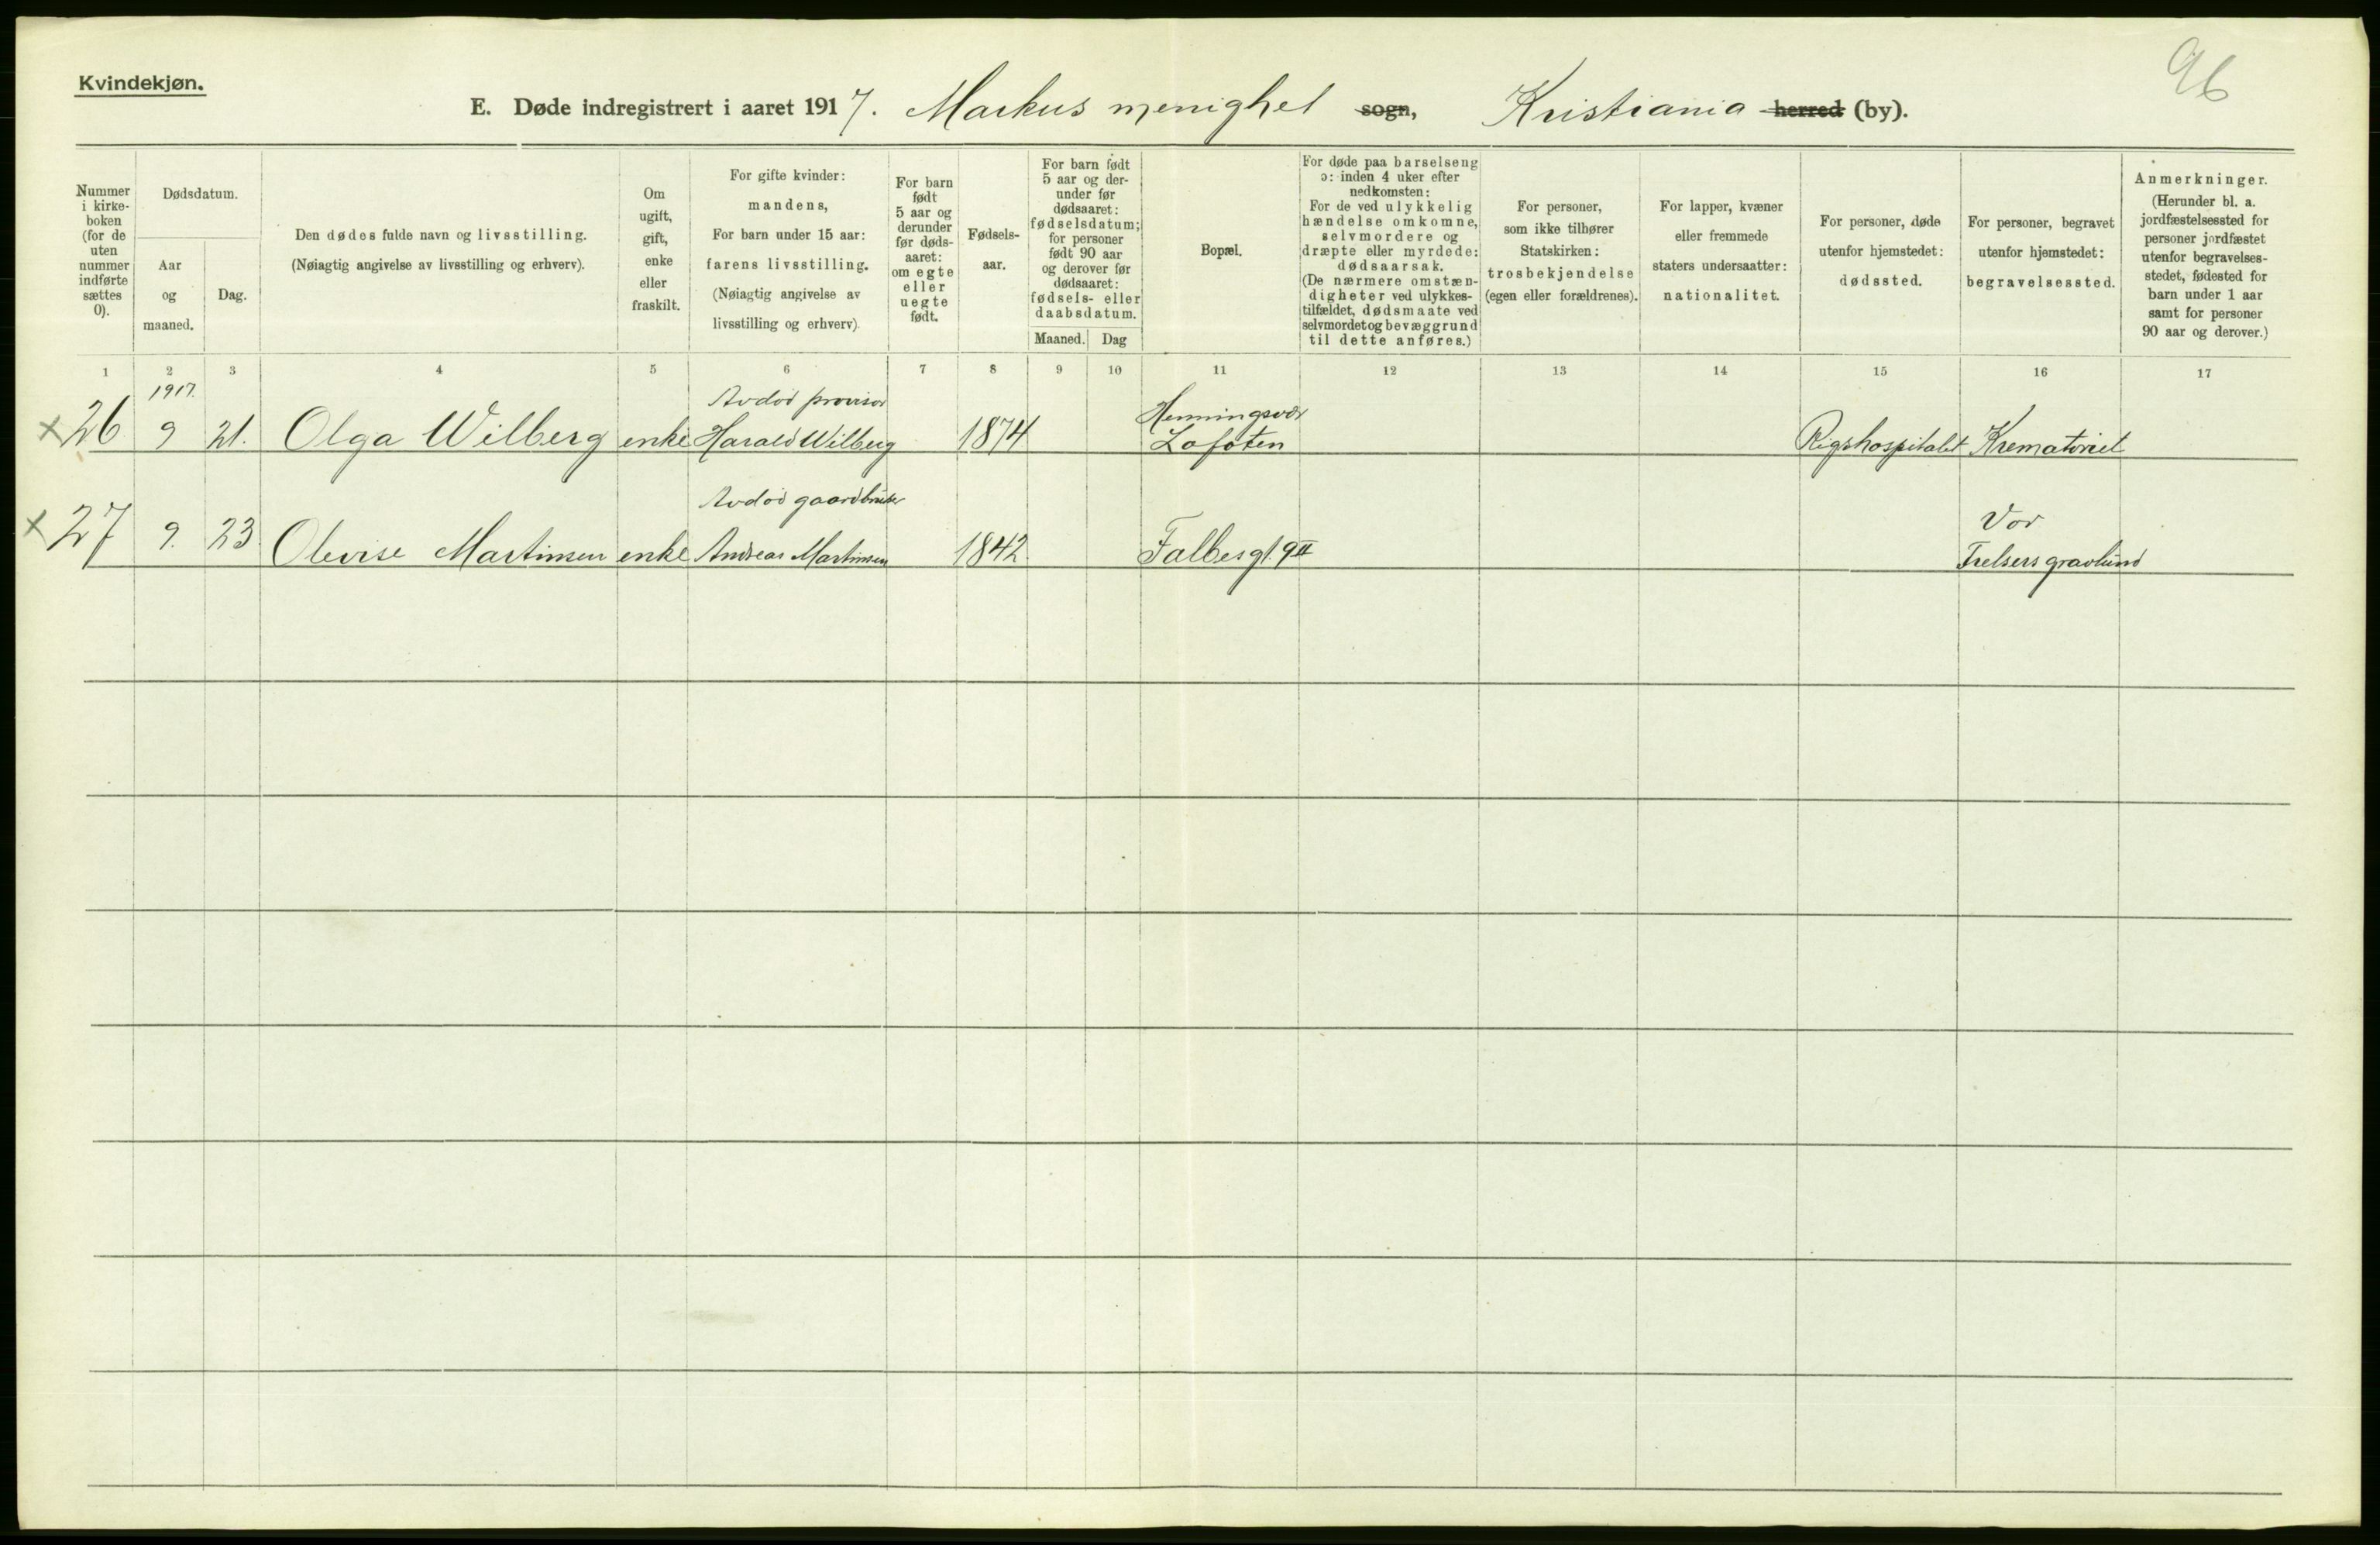 Kvindekjøn.
96
E. Døde indregistrert i aaret 1917. Markus menighet sogn, Kristiania herred (by).
Nummer
i kirke-
boken
(for de
uten
nummer
indførte
sættes
0).
Dødsdatum.
Aar
og
maaned.
Dag.
Den dødes fulde navn og livsstilling.
(Nøiagtig angivelse av livsstilling og erhverv).
Om
ugift,
gift,
enke
eller
fraskilt.
For gifte kvinder:
mandens,
For barn under 15 aar:
farens livsstilling.
(Nøiagtig angivelse av
livsstilling og erhverv).
For barn
født
5 aar og
derunder
før døds-
aaret:
om egte
eller
uegte
født.
Fødsels-
aar.
For barn født
5 aar og der-
under før
dødsaaret:
fødselsdatum;
for personer
født 90 aar
og derover før
dødsaaret:
fødsels- eller
daabsdatum.
Maaned. Dag
Bopæl.
For døde paa barselseng
ɔ: inden 4 uker efter
nedkomsten:
For de ved ulykkelig
hændelse omkomne,
selvmordere og
dræpte eller myrdede:
dødsaarsak.
(De nærmere omstæn-
digheter ved ulykkes-
tilfældet, dødsmaate ved
selvmordet og bevæggrund
til dette anføres.)
For personer,
som ikke tilhører
Statskirken:
trosbekjendelse
(egen eller forældrenes).
For lapper, kvæner
eller fremmede
staters undersaatter:
nationalitet.
For personer, døde
utenfor hjemstedet:
dødssted.
For personer, begravet
utenfor hjemstedet:
begravelsessted.
Anmerkninger.
(Herunder bl. a.
jordfæstelsessted for
personer jordfæstet
utenfor begravelses-
stedet, fødested for
barn under 1 aar
samt for personer
90 aar og derover.)
1 2 3 4 5 6 7 8 9 10 11 12 13 14 15 16 17
1917. Avdød provisor Henningsvær
x 26 9 21. Olga Wilberg enke Harald Wilberg 1874 Lofoten Rigshospitalet Krematoriet
Avdød gaardbruker Vor
x 27 9. 23 Olevise Martinsen enke Andreas Martinsen 1842 Falbesgt. 9 II Frelsers gravlund